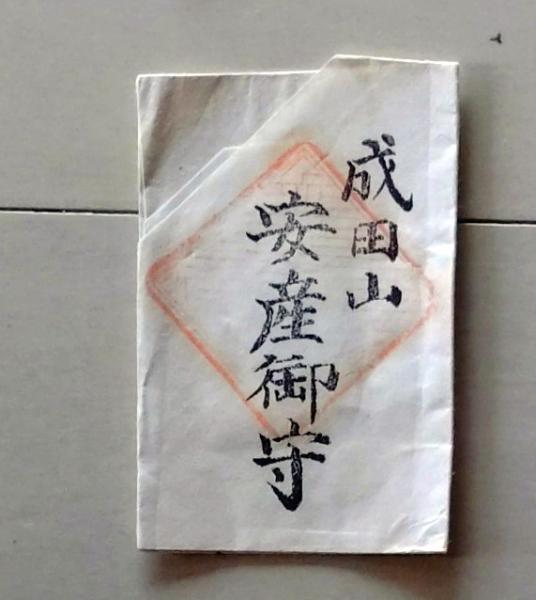 成田山
安産御守